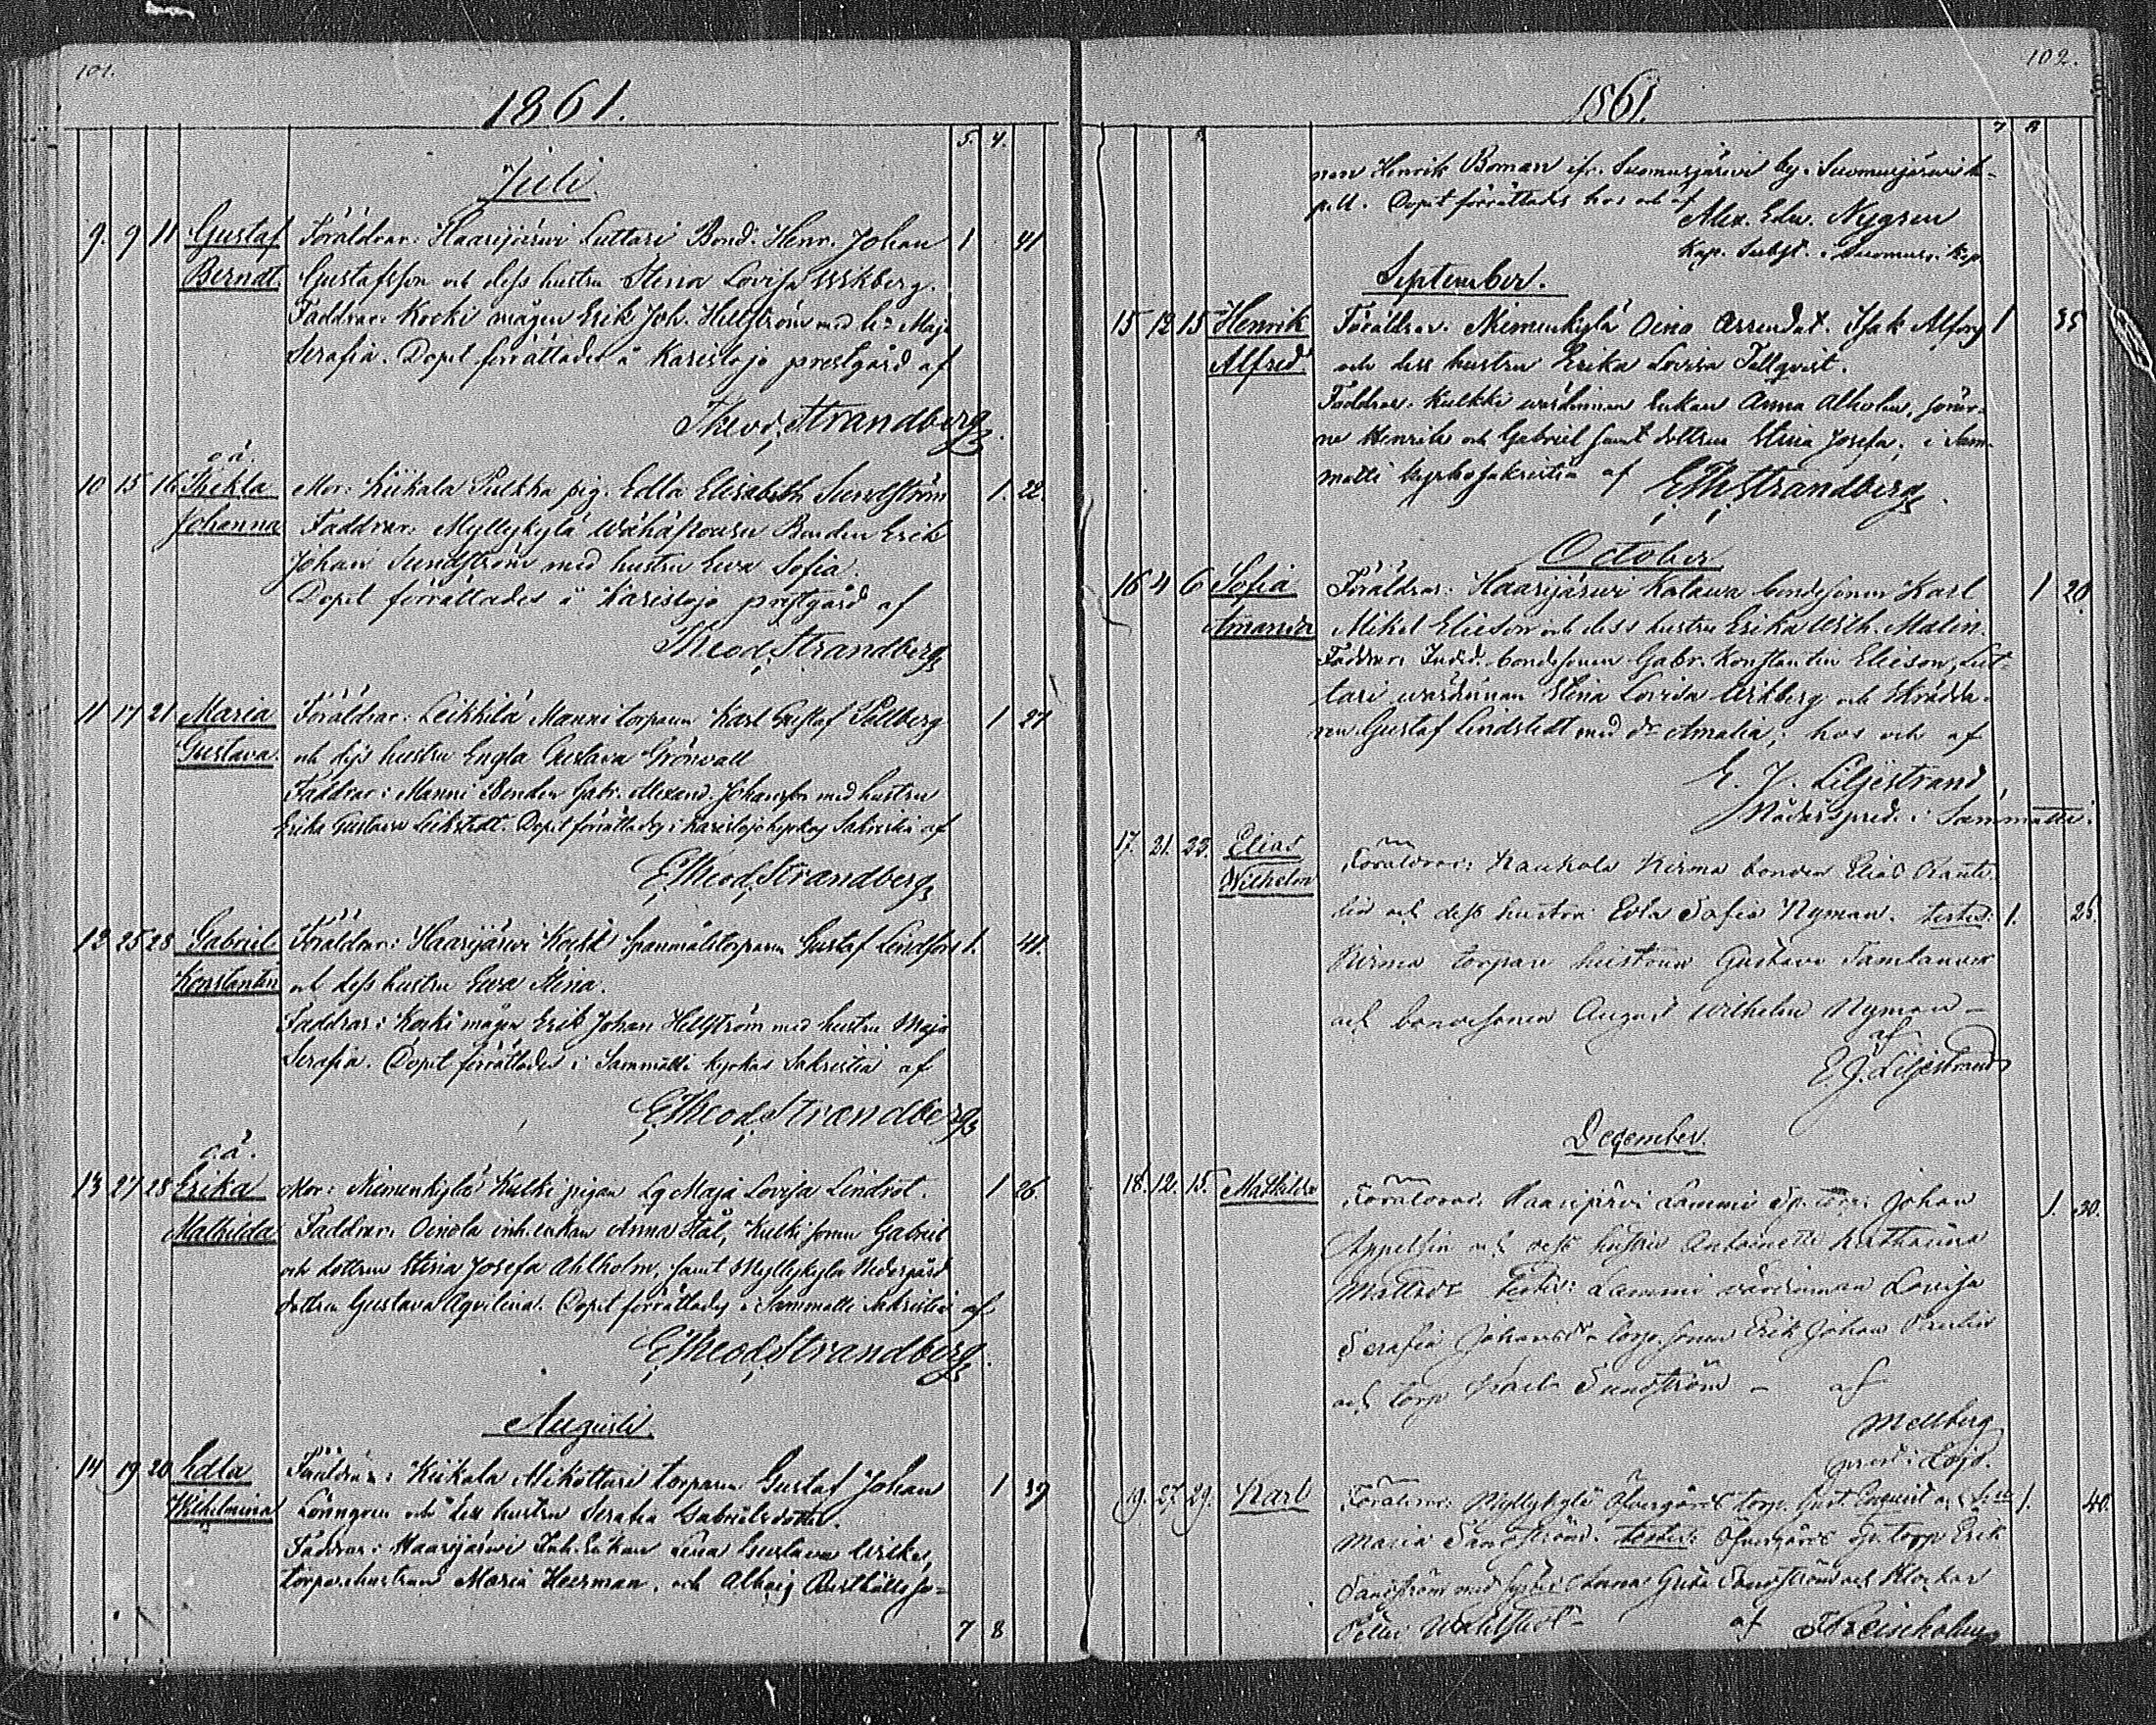 101.
1861.
5. 4.
Juli.
9. 9 11 Gustaf Föräldrar: Haarijärwi Luttari Bond. Henr. Johan 1 41
Berndt. Gustafsson och dess hustru Stina Lovisa Wikberg.
Faddrar: Kocki mågen Erik Joh. Hellström med h:u Maja
Serafia. Dopet förrättades å Karislojo prestgård af
Theod. Strandberg.
o.ä.
10 15 16 Thekla Mor: Kiikala Pulkka pig. Edla Elisabeth Sundström 1. 22.
Johanna Faddrar: Myllykylä Bonden Erik
Johan Sundström med hustru Ewa Sofia.
Dopet förrättades å Karislojo prestgård af
Theod. Strandberg
11 17 21 Maria Föräldrar: Leikkilä Manni torparen Karl Gustaf 1 27
Gustava. och dess hustru Engla Gustava Grönvall
Faddrar: Manni Bonden Gabr. Alexand. Johansson med hustru
Erika Gustava Dopet förrättades i Karislojo kyrkas Sakristia af
E. Theod. Strandberg
12 25 28 Gabriel Föräldrar: Haarijärwi Kocki torparen Gustaf Lindfors 1. 41.
Konstantin och dess hustru Ewa Stina.
Faddrar: Kocki mågen Erik Johan Hellström med hustru Maja
Serafia. Dopet förrättades i Sammatti kyrkas Sakristia af
E. Theod. Strandberg
o.ä.
13 27 28 Erika Mor: Niemenkylä Kulki pigan Maja Lovisa 1 26.
Mathilda Faddrar: Oinola inh. enkan Anna Stål, Kulki sonen Gabriel
och dottren Stina Josefa Ahlholm, samt Myllykylä Nedergård
dottren Gustava Aqvilina. Dopet förrättades i Sammatti Sakristia af
E. Theod. Strandberg.
Augusti.
14 19 20 Edla Föräldrar: Kiikala Mikottari torparen Gustaf Johan 1 39
Wilhelmina Lönngren och dess hustru Serafia Gabrielsdotter.
Faddrar: Haarijärwi Inh. Enkan Lena Gustava
torparehustrun Maria Heerman, och
7 8
102.
1861.
7 8
nen Henrik Boman ifr. Suomusjärvi by i Suomusjärvi ka-
pell. Dopet förrättades hos och af
Alex. Edw. Nygren
Kap. Subst. i Suomusj. Kap.
September.
15 12 15 Henrik Föräldrar: Niemenkylä Oino Arrendat. Isak 1 35
Alfred. och dess hustru Erika Lovisa Tillqvist.
Faddrar: Kulkki wärdinnan Enkan Anna Alholm, söner-
ne Henrik och Gabriel samt dottren Stina Josefa; i Sam-
matti kyrkosakristia af E. Th. Strandberg.
October
16 4 6 Sofia Föräldrar: Haarijärwi Katawa bondesonen Karl 1 20
Amanda Mikel Elieson och dess hustru Erika Wilh. Malin.
Faddrar: bondesonen Gabr. Konstantin Elieson, Lut-
tari wärdinnan Stina Lovisa Wikberg och skrädda-
ren Gustaf Lindstedt med d:r Amalia; hos och af
E. J. Liljestrand
i Sammatti.
17. 21. 22. Elias Föräldrar: Kaukola Kirma bonden Elias
Wilhelm och dess hustru Edla Sofia Nyman. testes: 1. 25.
Kirma torpare hustrun Gustava
och bondesonen August Wilhelm Nyman –
af
E. J. Liljestrand
December.
18. 12. 15. Mathilda Föräldrar: Haarijärvi Lammi Johan 1. 30.
och dess hustru Antoinette Katharina
testes: Lammi värdinnan Lovisa
Serafia torp. sonen Erik Johan
och torp Karl Sundström – af
Mellberg
pred. i Lojo.
19. 27. 29. Karl Föräldrar: Myllykylä Öfvergård torp. Gust. 1. 40.
Maria Sandström. testes: Öfvergård torp Erik
Sandström med Anna Greta Sandström och Klockar
Petter Wahlstedt – af